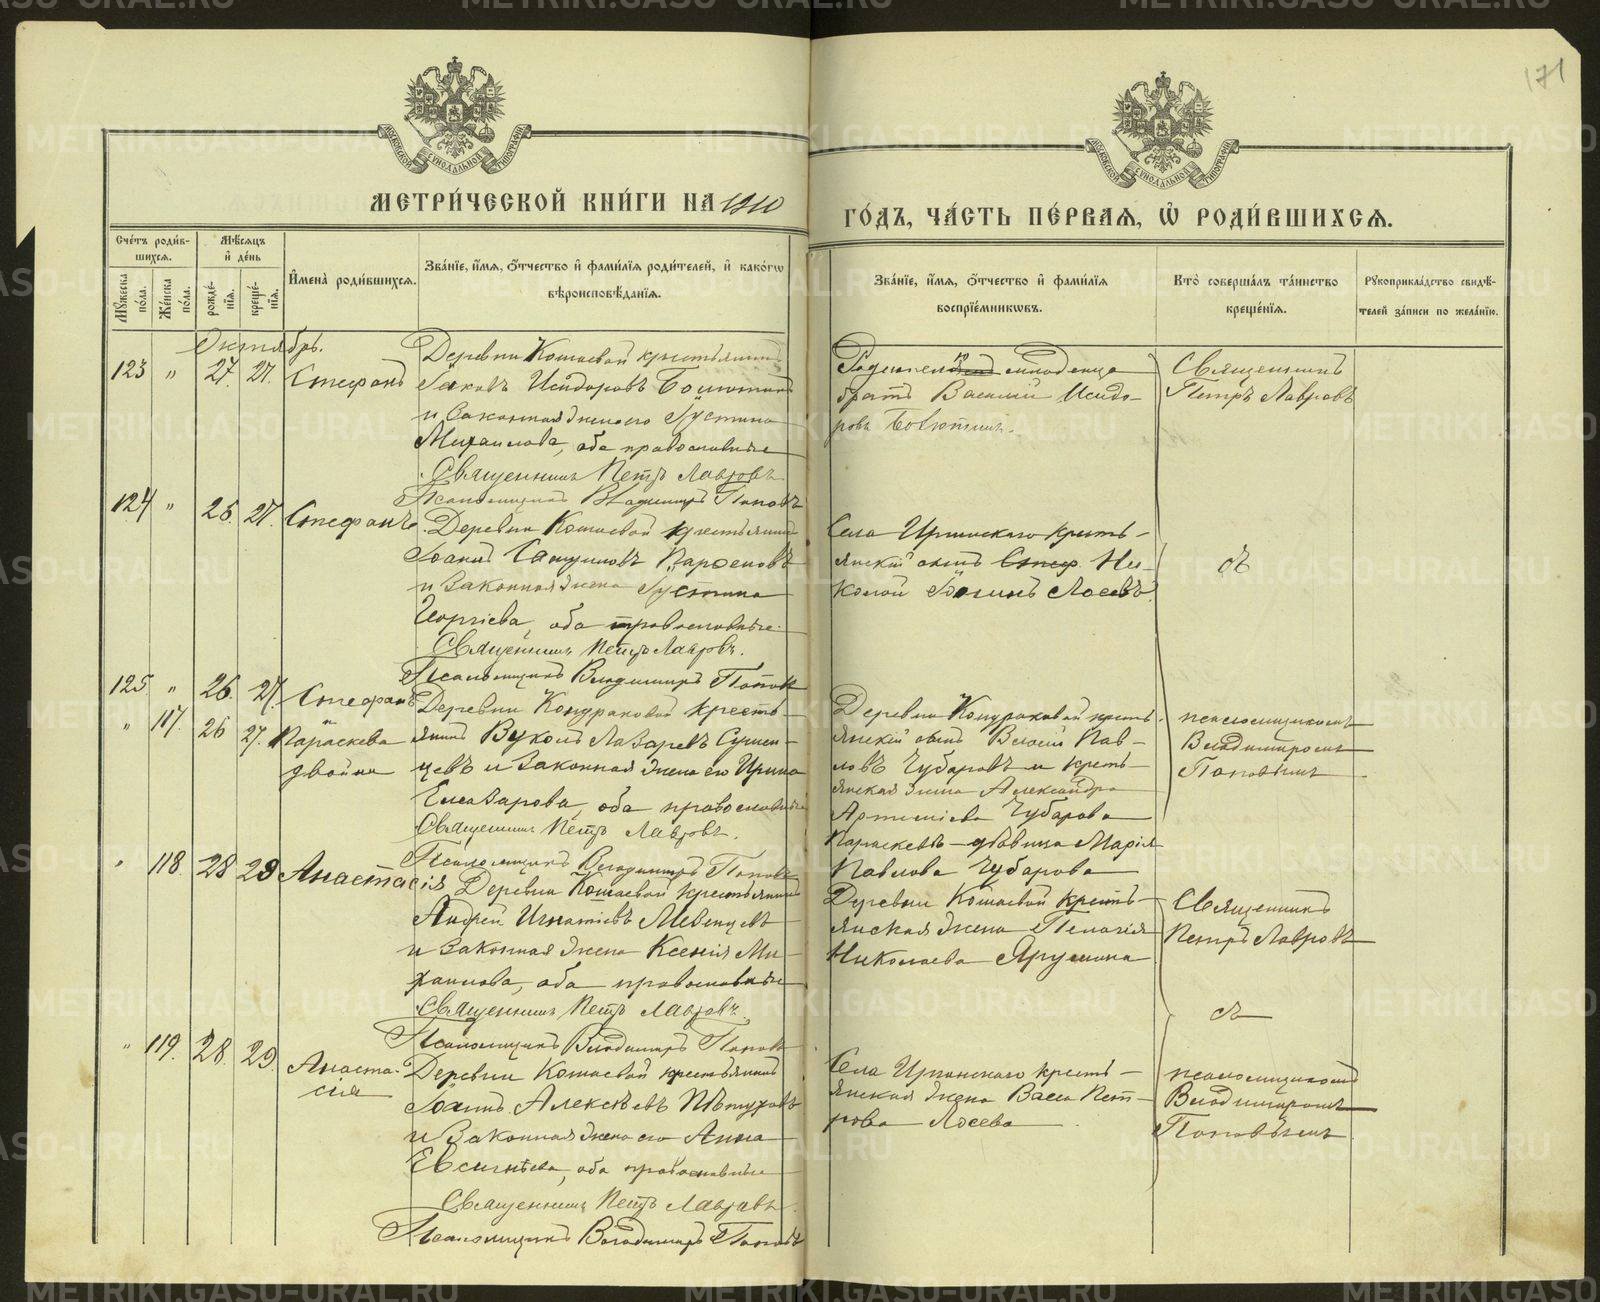 171
МОСКОВСКОЙ СѴНОДАЛЬНОЙ ТИПОГРАФІИ
МОСКОВСКОЙ СѴНОДАЛЬНОЙ ТИПОГРАФІИ
МЕТРИ́ЧЕСКОЙ КНИ́ГИ НА 1910
ГО́ДЪ, ЧА́СТЬ ПЕ́РВАѦ, Ѡ РОДИ́ВШИХСѦ.
Сче́тъ роди́в-
шихсѧ.
Мꙋ́жеска по́ла.
Же́нска по́ла.
Мѣ́сѧцъ
и҆ де́нь
рожде́-
нїѧ.
креще́-
нїѧ.
И҆мена̀ роди́вшихсѧ.
Зва́нїе, и҆́мѧ, ѻ҆́тчество и҆ фами́лїѧ роди́телей, и҆ како́гѡ
вѣроисповѣ́данїѧ.
Зва́нїе, и҆́мѧ, ѻ҆́тчество и҆ фами́лїѧ
воспрїе́мникѡвъ.
Кто̀ соверша́лъ та́инство
креще́нїѧ.
Рꙋкоприкла́дство свидѣ́-
телей за́писи по жела́нїю.
Октябрь.
123 " 27. 27. Стефанъ
Деревни Кошаевой крестьянинъ
Іаковъ Исидоровъ
и законная жена его Іустина
Михаилова, оба православные
Священникъ Петръ Лавровъ
Псаломщикъ Владимиръ Поповъ
младенца
братъ Василій Исидо-
ровъ
Священникъ
Петръ Лавровъ
124 " 26. 27. Стефанъ
Деревни Кошаевой крестьянинъ
Іоаннъ
и законная жена Іустина
Георгіева, оба православные.
Священникъ Петръ Лавровъ.
Псаломщикъ Владимиръ Поповъ
Села Иргинскаго кресть-
янскій сынъ Ни-
колай Лосевъ
съ
125 " 26. 27. Стефанъ
" 117. 26 27. и Параскева
двойни
Деревни Кондраковой кресть-
янинъ Вуколъ Лазаревъ Сушен-
цевъ и законная жена его Ирина
Елеазарова, оба православные
Священникъ Петръ Лавровъ.
Псаломщикъ Владимиръ Поповъ
Деревни Кондраковой кресть-
янскій сынъ Пав-
ловъ Чубаровъ и кресть-
янская жена Александра
Артеміева Чубарова
Параскевѣ - дѣвица Марія
Павлова Чубарова
псаломщикомъ
Владимиромъ
Поповымъ
" 118 28 29 Анастасія
Деревни Кошаевой крестьянинъ
Андрей Игнатіевъ
и законная жена Ксенія Ми-
хаилова, оба православные
Священникъ Петръ Лавровъ.
Псаломщикъ Владимиръ Поповъ
Деревни Кошаевой кресть-
янская жена Пелагія
Николаева Ярушина
Священникъ
Петръ Лавровъ
съ
" 119. 28. 29. Анаста-
сія
Деревни Кошаевой крестьянинъ
Іоаннъ Алексѣевъ Пѣтуховъ
и законная жена его Анна
Евсигнѣева, оба православные
Священникъ Петръ Лавровъ.
Псаломщикъ Владимиръ Поповъ
Села Иргинскаго кресть-
янская жена Васса Пет-
рова Лосева
псаломщикомъ
Владимиромъ
Поповымъ
METRIKI.GASO-URAL.RU